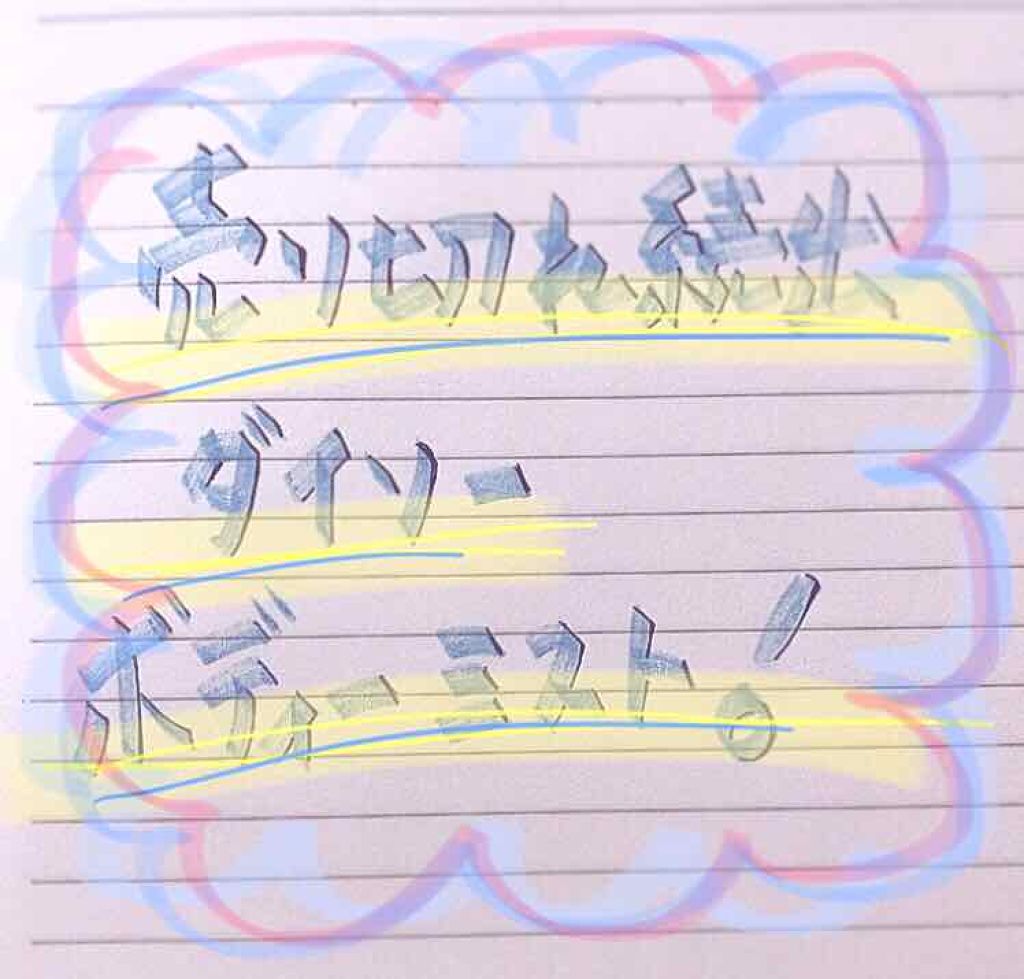 売り切れ続出
ダイソー
ボディーミスト!